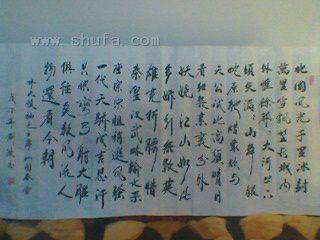 www.shufa.com
北国风光千里冰封
萬里雪飘望長城内
外惟餘莽莽大河上下
頓失滔滔山舞銀
蛇原馳蜡象欲与
天公試比高須晴日
看红装素裹分外
妖娆江山如此
多娇引無数英
雄竞折腰惜
秦皇汉武略输文采
唐宗宋祖稍逊风骚
一代天骄成吉思汗
只识弯弓射大雕
俱往矣数风流人
物還看今朝